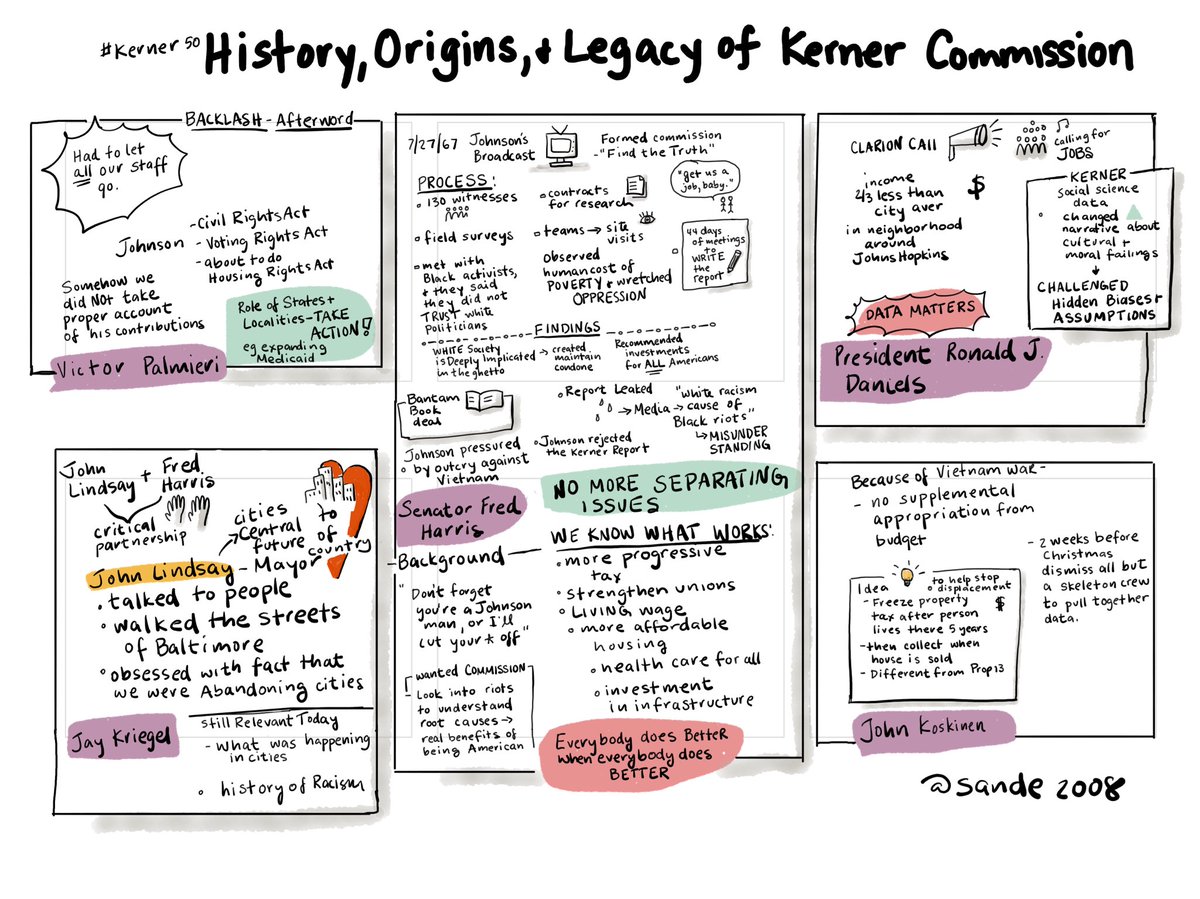 #Kerner 50 History, Origins, + Legacy of Kerner Commission
BACKLASH - Afterword
Had to let
all our staff
go.
Johnson
- Civil Rights Act
- Voting Rights Act
- about to do
Housing Rights Act
Somehow we
did NOT take
proper account
of his contributions
Role of States +
Localities - TAKE
ACTION!
eg expanding
Medicaid
Victor Palmieri
John
Lindsay + Fred
Harris
critical
partnership
cities
Central to
future of
country
John Lindsay - Mayor
• talked to people
• walked the streets
of Baltimore
• obsessed with fact that
we were Abandoning cities
Jay Kriegel
Still Relevant Today
- What was happening
in cities
• history of Racism
7/27/67 Johnson's
Broadcast
Formed commission
- "Find the Truth"
PROCESS:
• 130 witnesses
• field surveys
• met with
Black activists,
+ they said
they did not
TRUST white
Politicians
• contracts
for research
• teams → site
visits
observed
human cost of
POVERTY + wretched
OPPRESSION
"get us a
job, baby."
44 days
of meetings
to
WRITE
the
report
FINDINGS
WHITE Society
is Deeply Implicated
in the ghetto
→ created
maintain
condone
Recommended
investments
for ALL Americans
Bantam
Book
deal
• Report Leaked
→ Media → "white racism
cause of
Black riots"
↳ MISUNDER
STANDING
• Johnson rejected
the Kerner Report
Johnson pressured
• by outcry against
Vietnam
Senator Fred
Harris
NO MORE SEPARATING
ISSUES
- Background
"Don't forget
you're a Johnson
man, or I'll
cut your * off"
wanted COMMISSION
- Look into riots
to understand
root causes →
real benefits of
being American
WE KNOW WHAT WORKS:
• more progressive
tax
• strengthen unions
• LIVING wage
• more affordable
housing
• health care for all
• investment
in infrastructure
Everybody does BetteR
when everybody does
BETTER
CLARION CAll
calling for
JOBS
income
2/3 less than
city aver
in neighborhood
around
Johns Hopkins
$
KERNER
Social science
data
• changed
narrative about
cultural +
moral failings
↓
CHALLENGED
Hidden Biases +
ASSUMPTIONS
DATA MATTERS
President Ronald J.
Daniels
Because of Vietnam war -
- no supplemental
appropriation from
budget
- 2 weeks before
Christmas
dismiss all but
a skeleton crew
to pull together
data.
Idea to help stop
displacement
- Freeze property
tax after person
lives there 5 years
- then collect when
house is sold
- Different from Prop 13
$
John Koskinen
@sande 2008